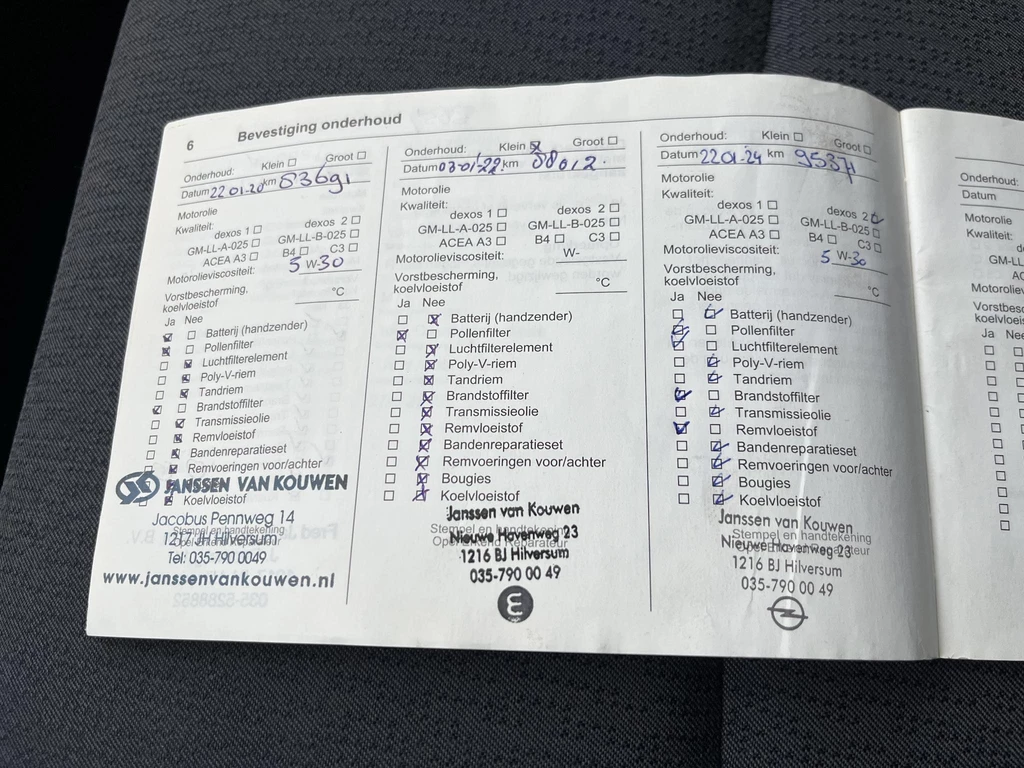 6 Bevestiging onderhoud
Onderhoud: Klein ☐ Groot ☐
Datum 22 01-20 km 83691
Motorolie
Kwaliteit:
dexos 1 ☐ dexos 2 ☐
GM-LL-A-025 ☐ GM-LL-B-025 ☐
ACEA A3 ☐ B4 ☐ C3 ☐
Motorolieviscositeit: 5 W-30
Vorstbescherming,
koelvloeistof °C
Ja Nee
☑ ☐ Batterij (handzender)
☒ ☐ Pollenfilter
☐ ☒ Luchtfilterelement
☐ ☒ Poly-V-riem
☐ ☒ Tandriem
☑ ☐ Brandstoffilter
☐ ☒ Transmissieolie
☐ ☒ Remvloeistof
☐ ☒ Bandenreparatieset
☐ ☒ Remvoeringen voor/achter
JANSSEN VAN KOUWEN
☐ ☒ Koelvloeistof
Jacobus Pennweg 14
Stempel en handtekening
1217 JH Hilversum
Tel: 035-790 0049
www.janssenvankouwen.nl
Onderhoud: Klein ☒ Groot ☐
Datum 03-01-22 km 88012.
Motorolie
Kwaliteit:
dexos 1 ☐ dexos 2 ☐
GM-LL-A-025 ☐ GM-LL-B-025 ☐
ACEA A3 ☐ B4 ☐ C3 ☐
Motorolieviscositeit: W-
Vorstbescherming,
koelvloeistof °C
Ja Nee
☐ ☒ Batterij (handzender)
☒ ☐ Pollenfilter
☐ ☒ Luchtfilterelement
☐ ☒ Poly-V-riem
☐ ☒ Tandriem
☐ ☒ Brandstoffilter
☐ ☒ Transmissieolie
☐ ☒ Remvloeistof
☐ ☒ Bandenreparatieset
☐ ☒ Remvoeringen voor/achter
☐ ☒ Bougies
☐ ☒ Koelvloeistof
Janssen van Kouwen
Stempel en handtekening
Nieuwe Havenweg 23
Opel Erkend Reparateur
1216 BJ Hilversum
035-790 00 49
Onderhoud: Klein ☐ Groot ☐
Datum 22 01-24 km 95371
Motorolie
Kwaliteit:
dexos 1 ☐ dexos 2 ☑
GM-LL-A-025 ☐ GM-LL-B-025 ☐
ACEA A3 ☐ B4 ☐ C3 ☐
Motorolieviscositeit: 5 W-30
Vorstbescherming,
koelvloeistof °C
Ja Nee
☐ ☑ Batterij (handzender)
☑ ☐ Pollenfilter
☑ ☐ Luchtfilterelement
☐ ☑ Poly-V-riem
☐ ☑ Tandriem
☑ ☐ Brandstoffilter
☐ ☑ Transmissieolie
☑ ☐ Remvloeistof
☐ ☑ Bandenreparatieset
☐ ☑ Remvoeringen voor/achter
☐ ☑ Bougies
☐ ☑ Koelvloeistof
Janssen van Kouwen
Stempel en handtekening
Nieuwe Havenweg 23
1216 BJ Hilversum
035-790 00 49
Onderhoud:
Datum
Motorolie
Kwaliteit:
Ja